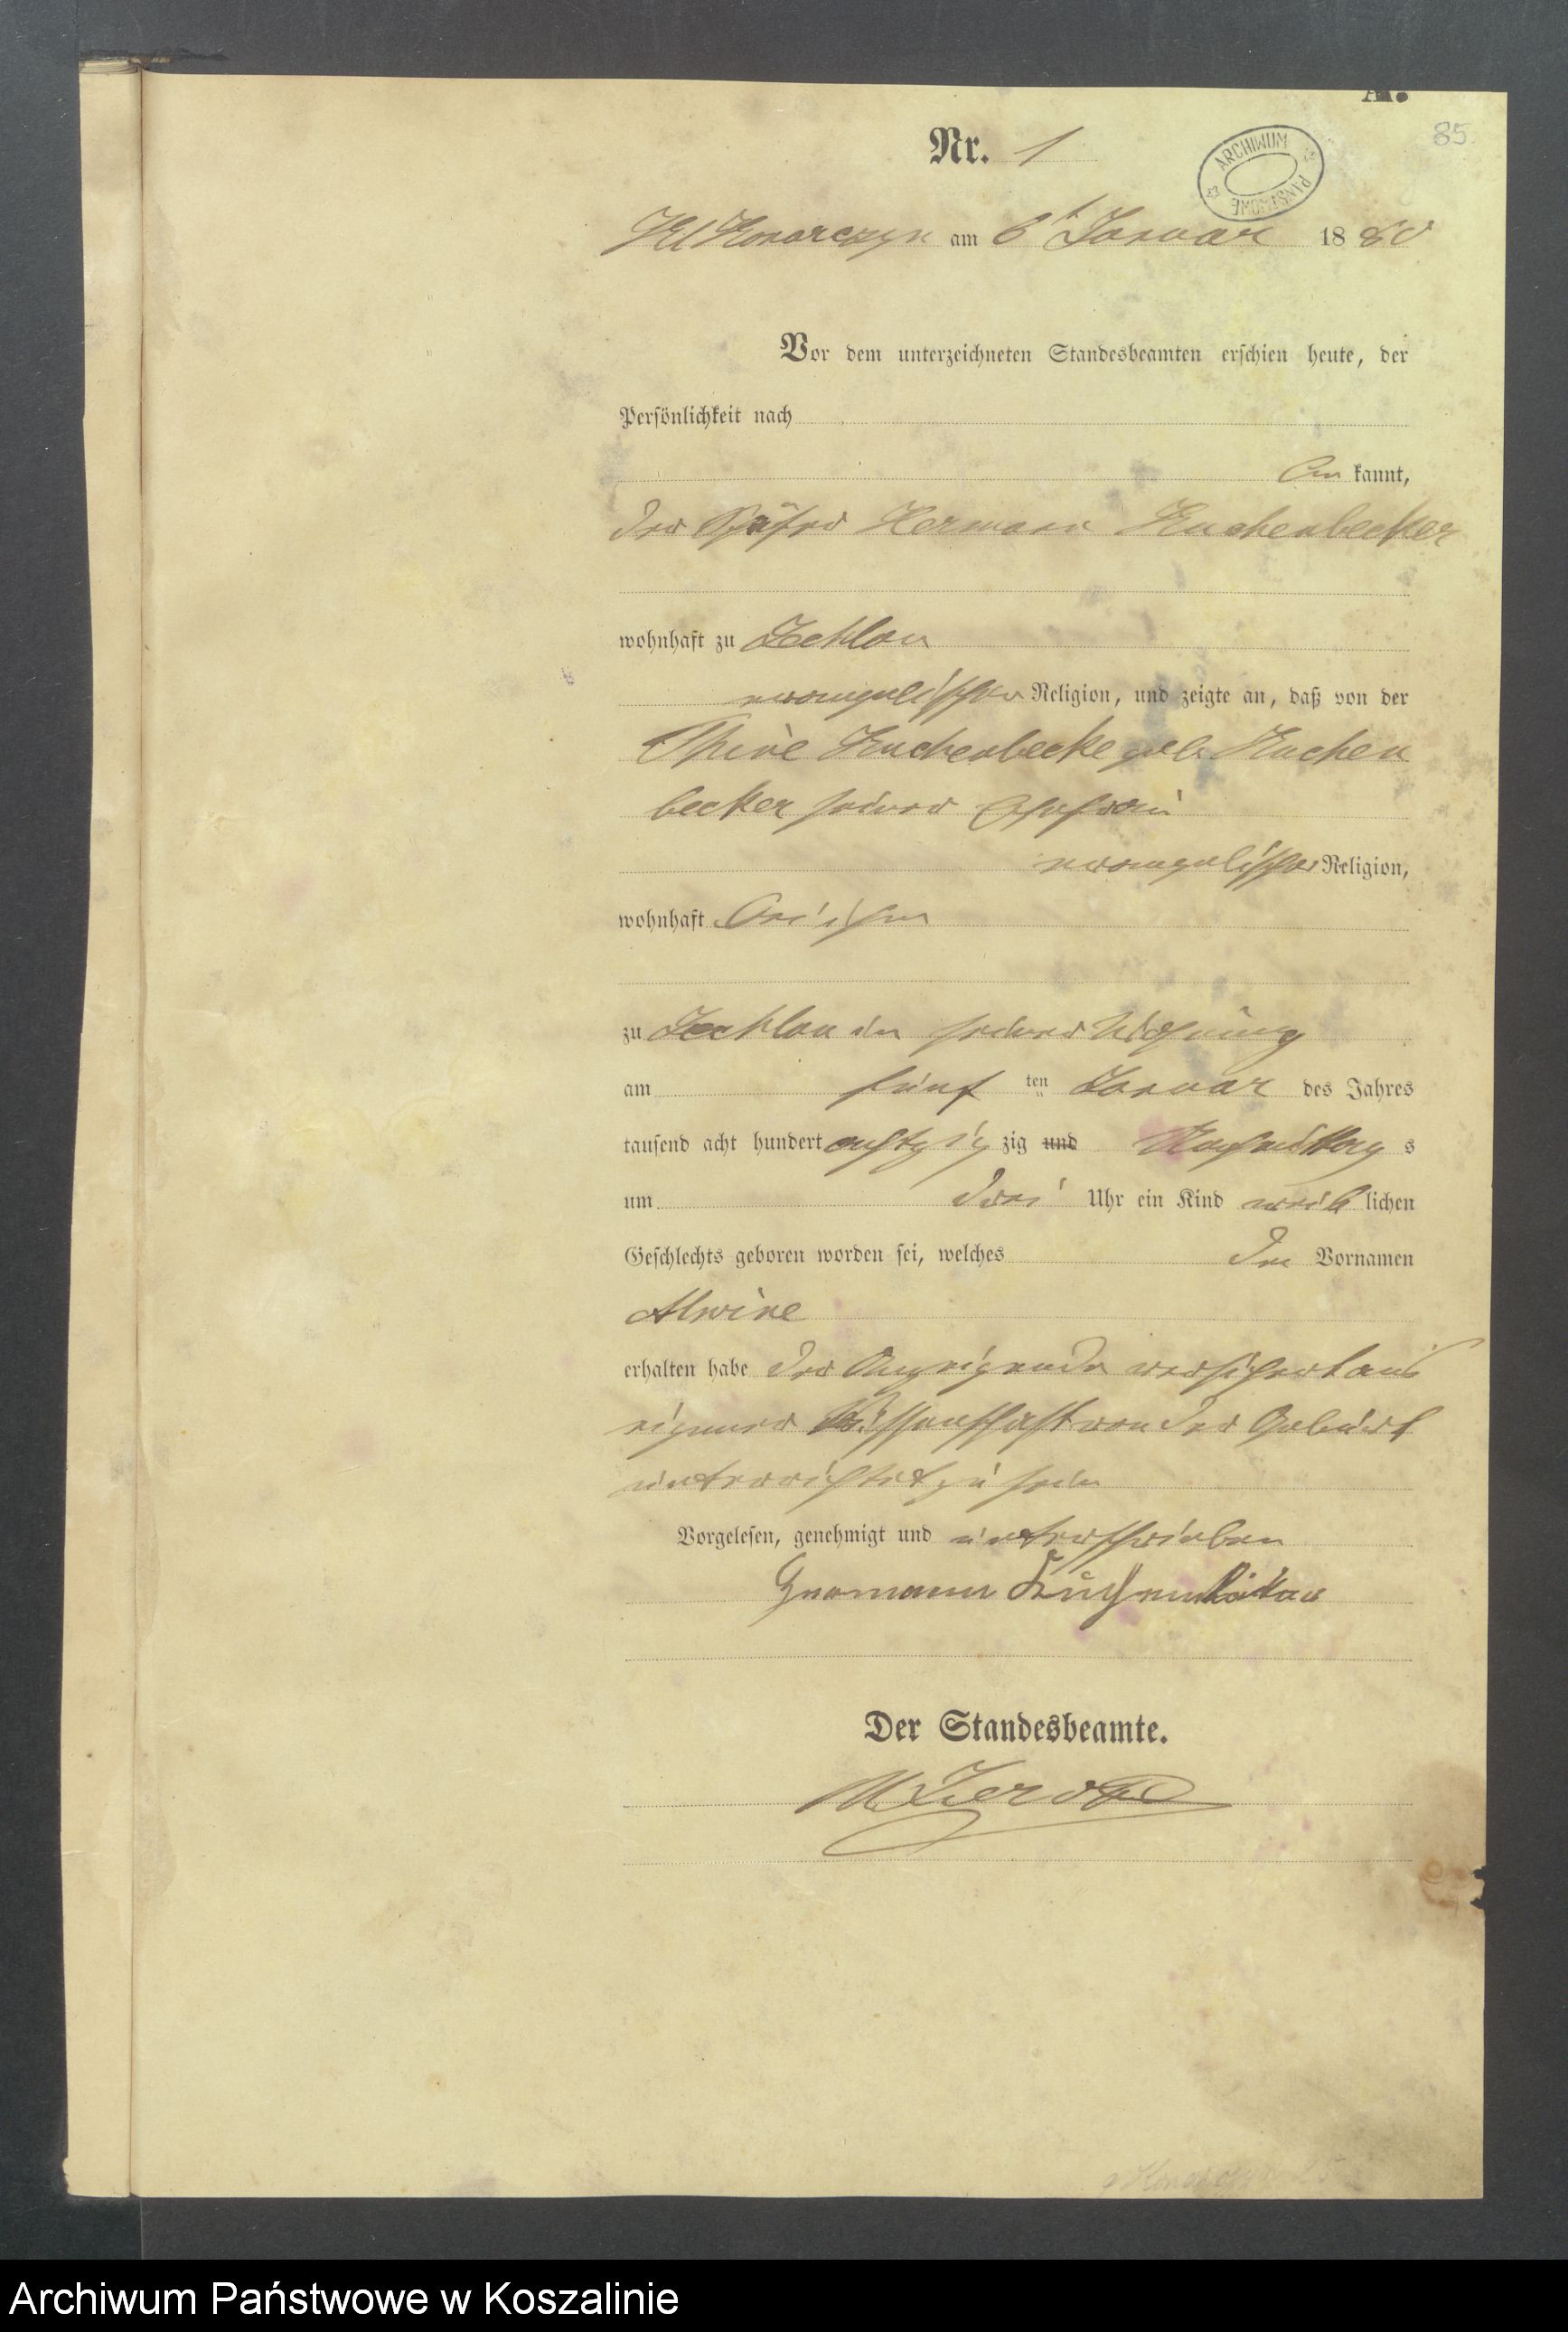 A.
85.
Nr. 1
ARCHIWUM PAŃSTWOWE
Kl Konarczyn am 6t Januar 1880
Vor dem unterzeichneten Standesbeamten erschien heute, der
Persönlichkeit nach
be kannt,
der Schäfer Hermann Kuchenbecker
wohnhaft zu Zechlau
evangelischer Religion, und zeigte an, daß von der
Kuchenbecke geb. Kuchen
becker seiner Ehefrau
evangelischer Religion,
wohnhaft bei ihm
zu Zechlau in seiner Wohnung
am fünf ten Januar des Jahres
tausend acht hundert achtzig zig und Nachmittag s
um drei Uhr ein Kind weib lichen
Geschlechts geboren worden sei, welches den Vornamen
Alwine
erhalten habe der Anzeigende versichert aus
eigener Wissenschaft von der Geburt
unterrichtet zu sein
Vorgelesen, genehmigt und unterschrieben
Hermann Kuchenbecker
Der Standesbeamte.
Archiwum Państwowe w Koszalinie